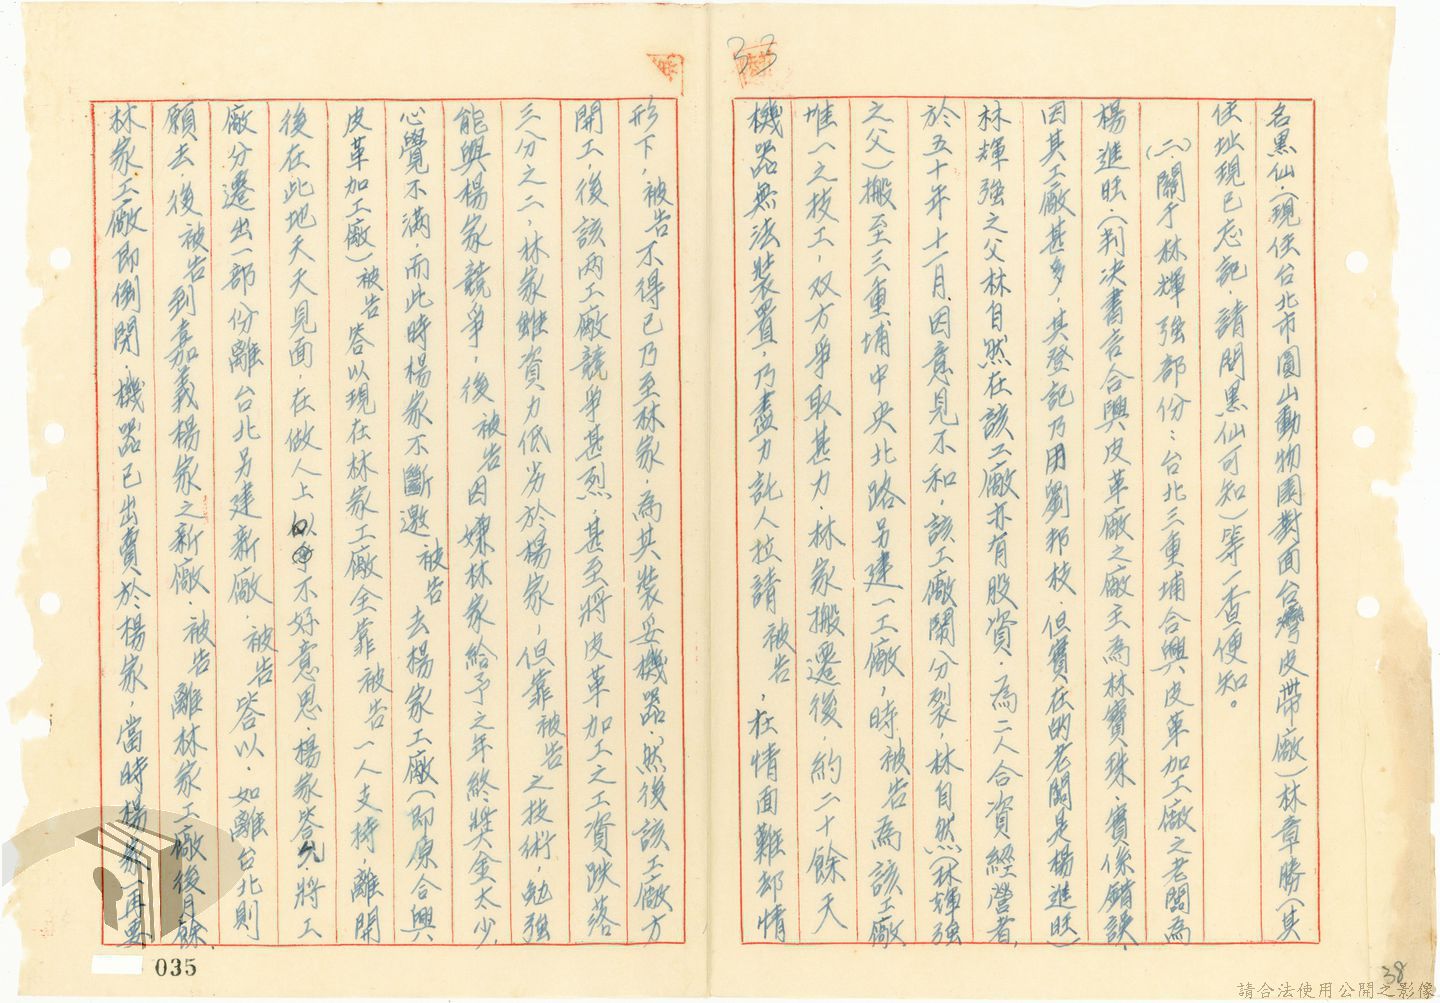 33
名黑仙.(現住台北市圓山動物園對面台灣皮帶廠)林章勝(其
住址現已忘記.請問黑仙可知)等一查便知。
(二)、關于林輝強部份:台北三重埔合興皮革加工廠之老闆為
楊進旺.(判決書言合興皮革廠之廠主為林寶珠.實係錯誤、
因其工廠甚多,其登記乃用劉邦枝.但實在的老闆是楊進旺)
林輝強之父林自然在該工廠亦有股資.為二人合資經營者,
於五十年十一月.因意見不和,該工廠鬧分裂,林自然(林輝強
之父)搬至三重埔中央北路另建一工廠,時.被告為該工廠
唯一之技工,双方爭取甚力.林家搬遷後,約二十餘天
機器無法裝置,乃盡力託人拉請 被告,在情面難却情
形下,被告不得已乃至林家.為其裝妥機器.然後該工廠方
開工,後該两工廠競爭甚烈,甚至將皮革加工之工資跌落
三分之二,林家雖資力低劣於楊家,但靠被告之技術,勉強
能與楊家競爭,後 被告因嫌林家給予之年終獎金太少.
心覺不滿,而此時楊家不斷邀 被告 去楊家工廠(即原合興
皮革加工廠)被告答以現在林家工廠全靠 被告一人支持,離開
後在此地天天見面.在做人上以不好意思.楊家答允.將工
廠分遷出一部份離台北另建新廠.被告答以.如離台北則
願去,後被告到嘉義楊家之新廠.被告離林家工廠後月餘.
林家工廠即倒閉.機器已出賣於楊家,當時楊家再要
035
38
請合法使用公開之影像